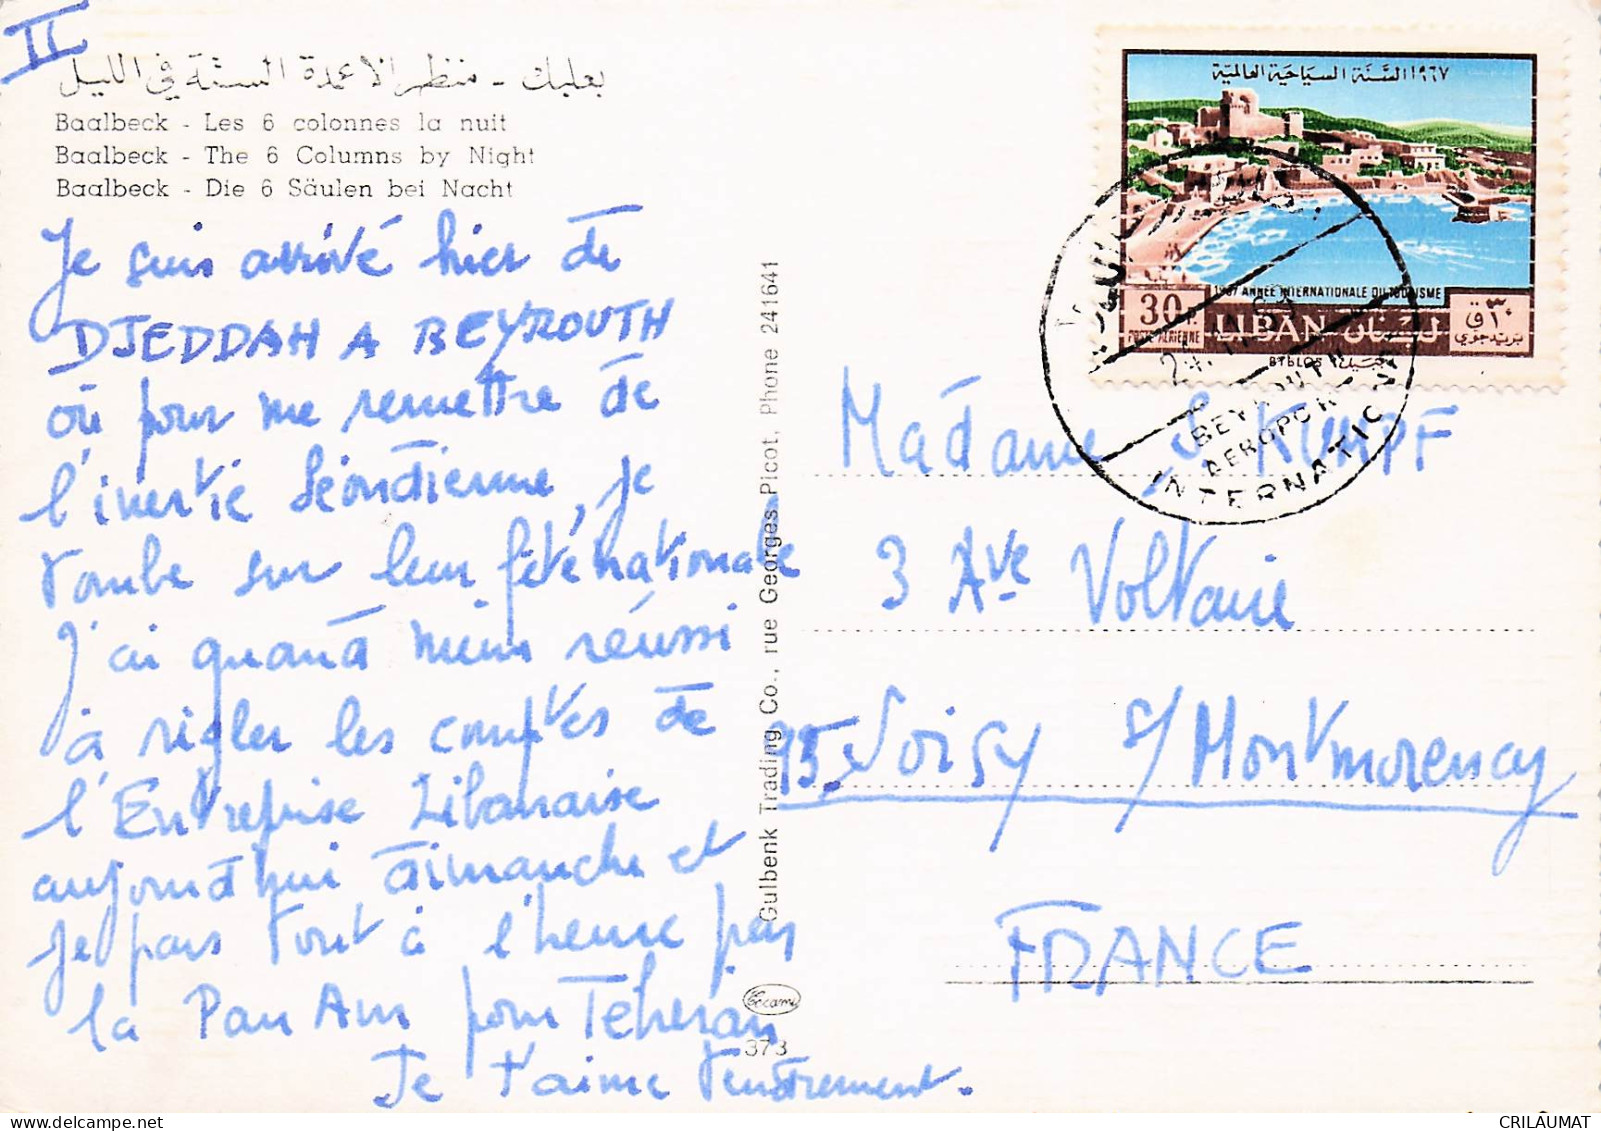 II
بعلبك - منظر الاعمدة الستة في الليل
Baalbeck - Les 6 colonnes la nuit
Baalbeck - The 6 Columns by Night
Baalbeck - Die 6 Säulen bei Nacht
Je suis arrivé hier de
DJEDDAH A BEYROUTH
où pour me remettre de
l'inertie Séoudienne, je
tombe sur leur fête nationale
J'ai quand même réussi
à régler les comptes de
l'Entreprise Libanaise
aujourd'hui dimanche et
je pars tout à l'heure par
la Pan Am pour Teheran
Je t'aime tendrement.
Gulbenk Trading Co., rue Georges Picot, Phone 241641
373
١٩٦٧ السنة السياحية العالمية
1967 ANNÉE INTERNATIONALE DU TOURISME
30 P.
POSTE AÉRIENNE
LIBAN لبنان
٣٠ ق
بريد جوي
BYBLOS جبيل
BEYROUTH
AEROPORT
INTERNATIONAL
Madame S. KUMPF
3 Ave Voltaire
95. Soisy s/ Montmorency
FRANCE
CRILAUMAT